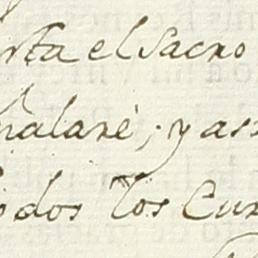 rta el Sacro
halaré; y as
odos los Cur